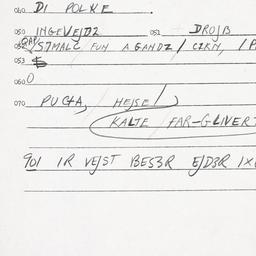 060 DI POLKE
050 INGEVEJDZ 051 DROJB
052 SJMALC FUN A GANDZ / CZRN, / P
053 $
060 O
070 PUCTA, HEJSE
KALTE / FAR-GLIVERT
901 IR VEJST BES3R EJD3R IX